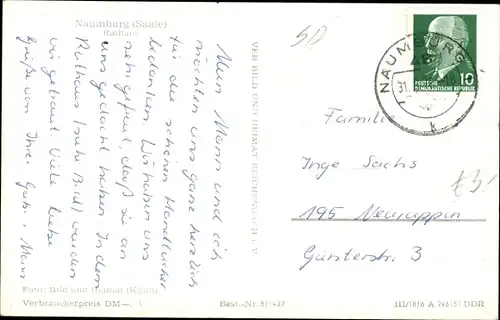 Naumburg (Saale)
Rathaus
Mein Mann und ich
möchten uns ganz herzlich
für die schönen Handtücher
bedanken. Wir haben uns
sehr gefreut, daß sie an
uns gedacht haben. In dem
Rathaus (siehe Bild) wurden
wir getraut. Viele liebe
Grüße von Ihrer Gabi u. Mann
Foto: Bild und Heimat
Verbraucherpreis DM
VEB BILD UND HEIMAT REICHENBACH i. V.
Best.-Nr. 8/1427
NAUMBURG
31.
k
DEUTSCHE
DEMOKRATISCHE REPUBLIK
10
50
Familie
Inge Sachs
195 Neuruppin
Gürterstr. 3
III/18/6 A 746/65 DDR